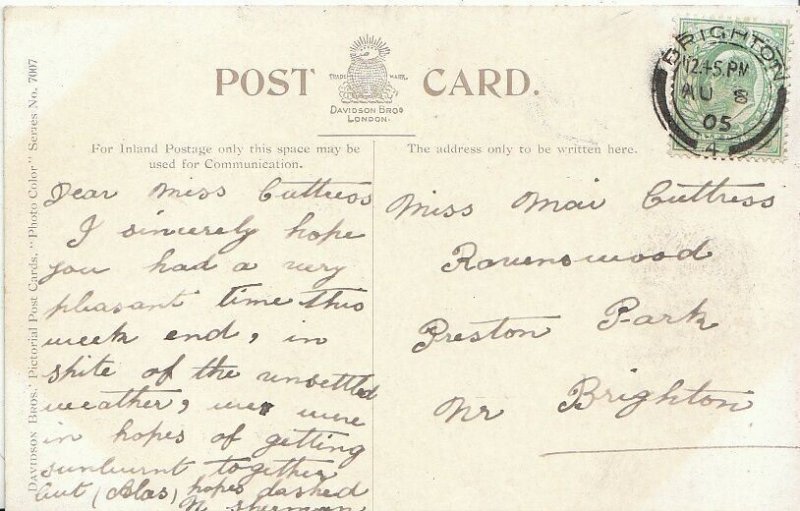 POST CARD.
TRADE MARK.
DAVIDSON BROS
LONDON.
BRIGHTON
12.45.PM
AU 8
05
4
For Inland Postage only this space may be
used for Communication.
The address only to be written here.
DAVIDSON BROS.' Pictorial Post Cards. "Photo Color" Series No. 7007
Dear Miss Cuttress
I sincerely hope
you had a very
pleasant time this
week end, in
spite of the unsettled
weather, we were
in hopes of getting
sunburnt together
but (Alas) hopes dashed
Sherman
Miss Mai Cuttress
Ravenswood
Preston Park
Nr Brighton